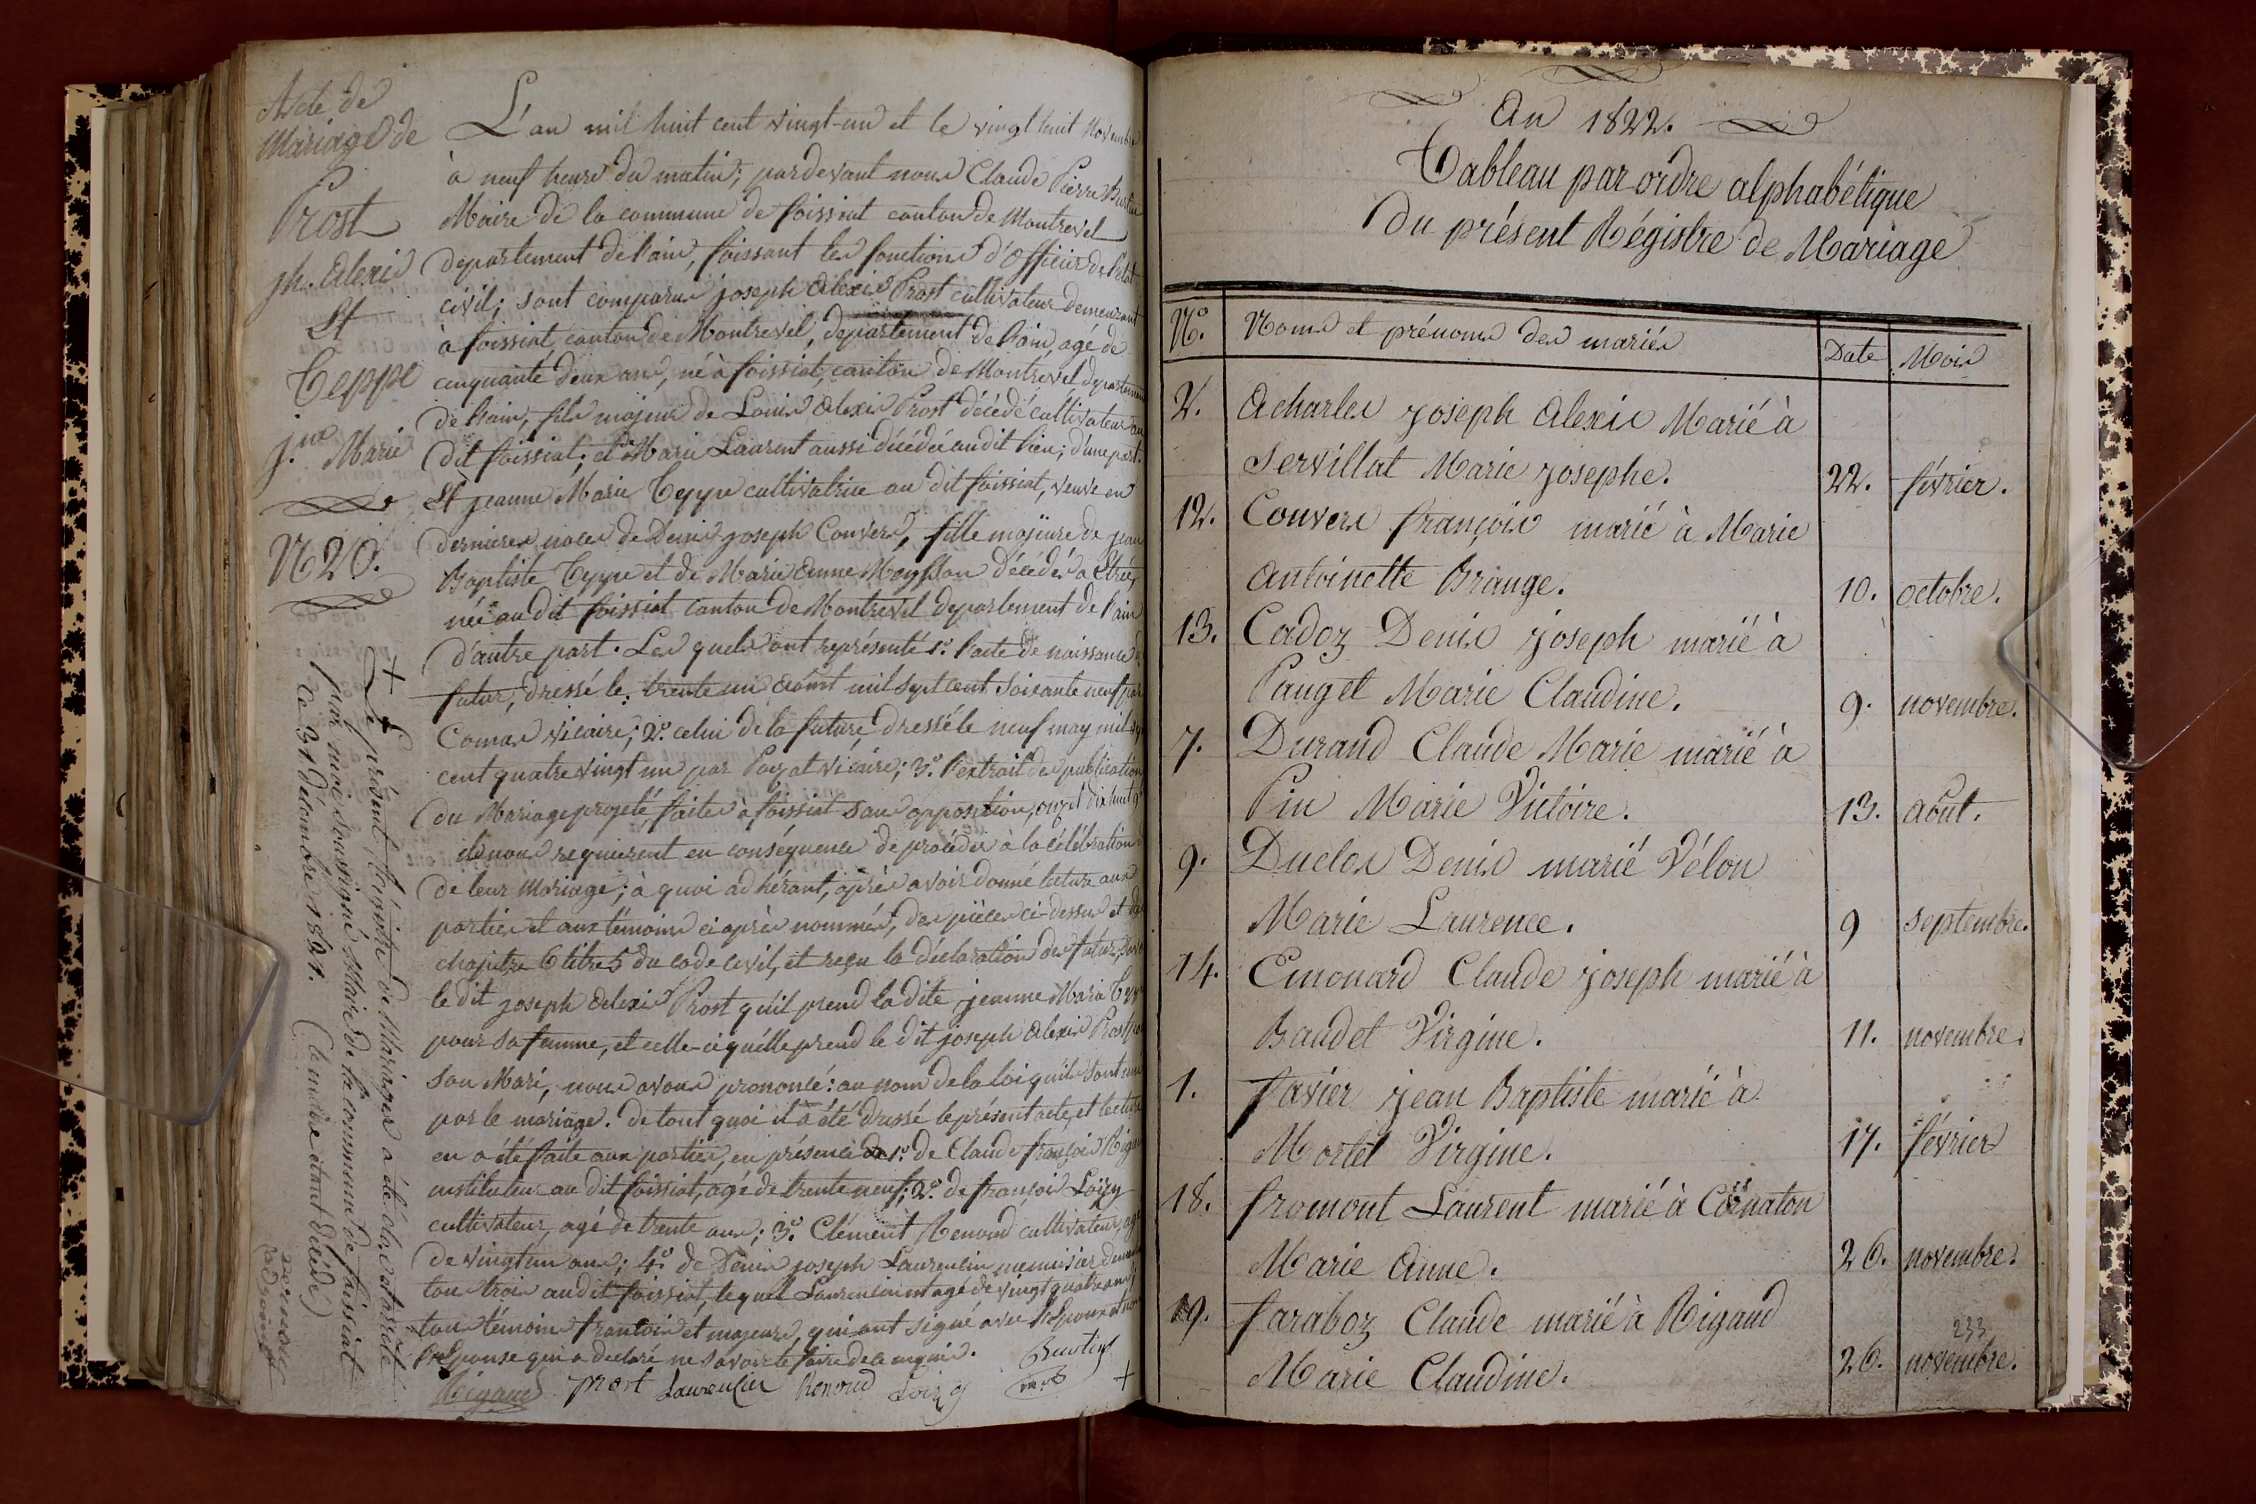 Acte de
Mariage de
Prost
jh. Alexis
Et
Teppe
j.ne Marie
N 20.
L'an mil huit cent vingt-un et le vingt huit Novembre
à neuf heure du matin; pardevant nous Claude Pierre
Maire de la commune de foissiat canton de Montrevel
département de l'ain, faissant les fonctions d'Officier de l'etat
civil; sont comparus joseph Alexis Prost cultivateur demeurant
à foissiat canton de Montrevel, département de l'ain agé de
cinquante deux ans, né à foissiat, canton de Montrevel departement
de l'ain, fils majeur de Louis Alexis Prost décédé cultivateur au
dit foissiat; et Marie Laurent aussi décédée audit lieu; d'une part.
Et jeanne Marie Teppe cultivatrice au dit foissiat, veuve en
dernieres noces de Denis joseph Convers, fille majeure de jean
Baptiste Teppe et de Marie Anne décédés a Etrez,
née au dit foissiat canton de Montrevel departement de l'ain
d'autre part. Les quels ont représenté 1.° l'acte de naissance du
futur, dressé le trente un Août mil sept cent soixante neuf par
Comas vicaire; 2.° celui de la future, dressé le neuf may mil sept
cent quatre vingt un par Payat vicaire; 3.° l'extrait des publications
du Mariage projeté faites à foissiat sans opposition, onze et dix huit
ils nous requierent en conséquence de procéder à la célébration
de leur Mariage; à quoi adhérant, après avoir donné lecture aux
parties et aux témoins ci après nommés, des pièces ci-dessus et du
chapitre 6 titre 5 du code civil, et reçu la déclaration des futurs,
le dit joseph Alexis Prost qu'il prend la dite jeanne Marie Teppe
pour sa femme, et celle-ci qu'elle prend le dit joseph Alexis Prost pour
son Mari, nous avons prononcé: au nom de la loi qu'ils sont unis
par le mariage. de tout quoi il a été dressé le présent acte, et lecture
en a été faite aux parties, en présence de 1.° de Claude françois Rigaud
instituteur au dit foissiat, agé de trente neuf; 2.° de françois Loizy
cultivateur, agé de trente ans; 3.° Clément Renoud cultivateur, agé
de vingt un ans; 4.° de Denis joseph Laurencin menuisier
tous trois au dit foissiat, lequel Laurencin est agé de vingt quatre ans;
tous témoins françois et majeurs, qui ont signé avec l'Epoux et non
l'Epouse qui a declaré ne savoir le faire de ce enquis.
Rigaud prost Laurencin Renoud Loizy +
+ Le présent Régistre de Mariages a été clos et arrêté
par moi soussigné Maire de la commune de foissiat
ce 31 décembre 1821. (le maire étant décédé)
An 1822.
Tableau par ordre alphabétique
du présent Régistre de Mariage
N.° Noms et prénoms des mariés Date Mois
2. Acharles joseph Alexis Marié à
Servillat Marie josephe. 22. février.
12. Convers françois marié à Marie
Antoinette Brange. 10. octobre.
13. Cadoz Denis joseph marié à
Pauget Marie Claudine. 9. novembre.
7. Durand Claude Marie marié à
Pin Marie Victoire. 13. Août.
9. Duclos Denis marié Vélon
Marie Laurence. 9 septembre.
14. Emonard Claude joseph marié à
Baudet Virgine. 11. novembre.
1. favier jean Baptiste marié à
Mortel Virgine. 17. février
18. fromont Laurent marié à
Marie Anne. 26. novembre.
19. faraboz Claude marié à Rigaud
233
Marie Claudine. 26. novembre.